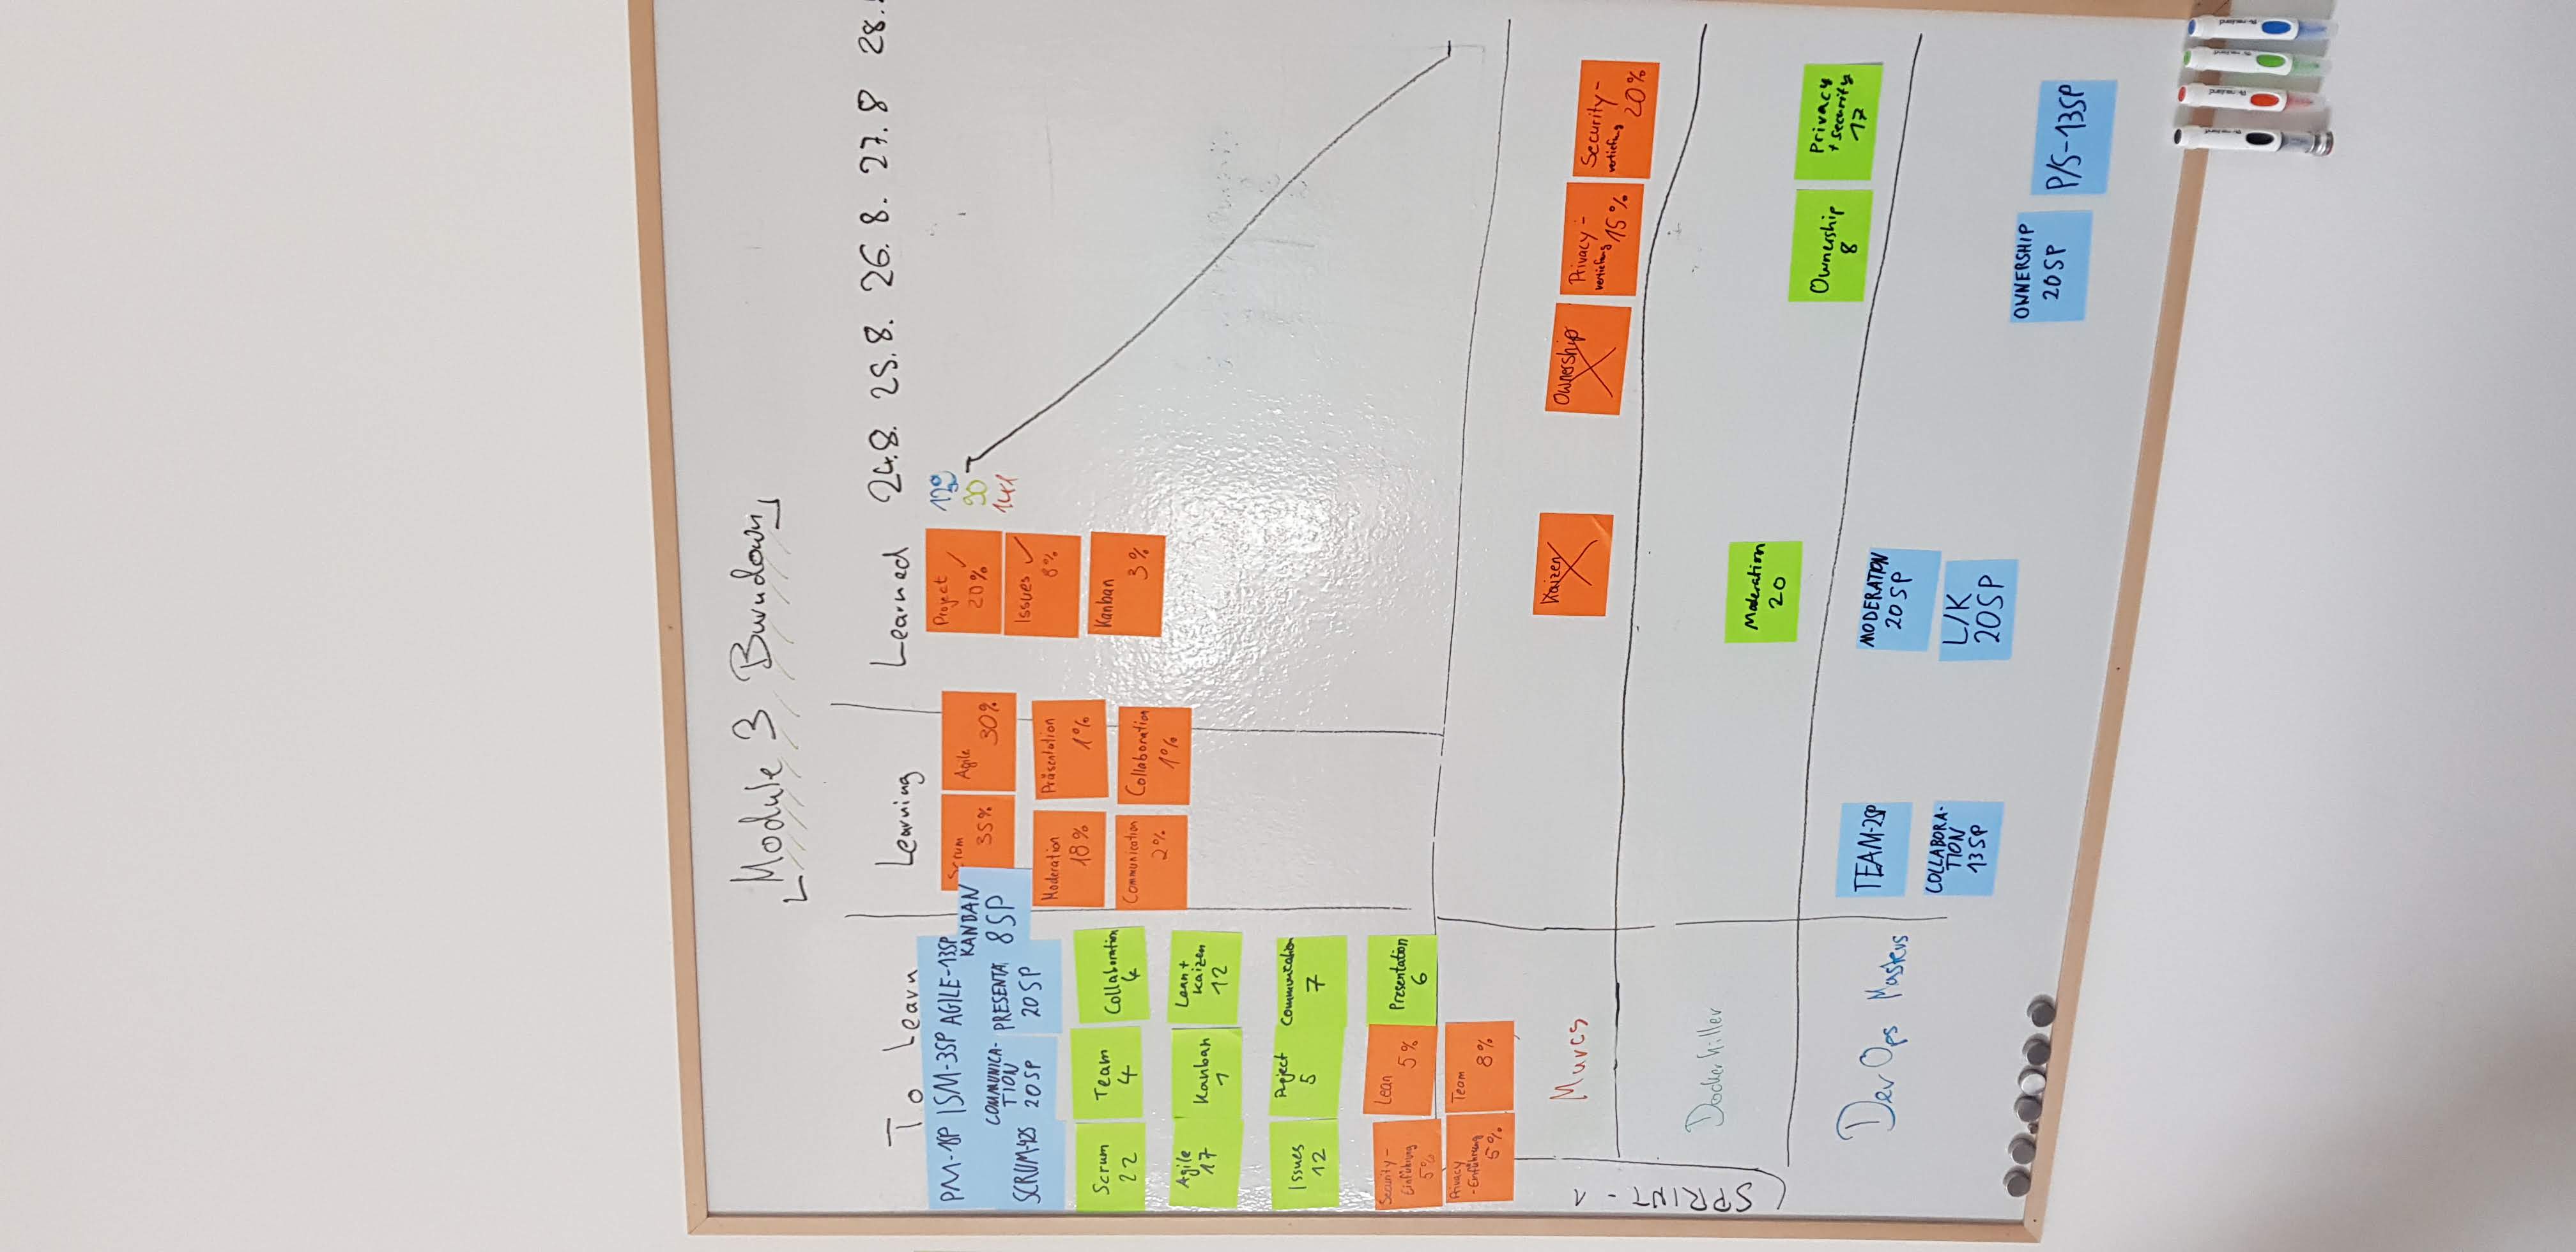 Module 3 Burndown
To Learn
Learning
Learned
24.8. 25.8. 26.8. 27.8 28.
PM-1SP
ISM-3SP
AGILE-13SP
KANBAN
8SP
SCRUM-42S
COMMUNICA-
TION
20 SP
PRESENTA
20 SP
Scrum
22
Team
4
Collaboration
4
Agile
17
Kanban
1
Lean +
Kaizen
12
Issues
12
Project
5
Communication
7
Security-
Einführung
5%
Lean
5%
Presentation
6
Privacy
-Einführung
5%
Team
8%
Scrum
35%
Agile
30%
Moderation
18%
Präsentation
1%
Communication
2%
Collaboration
1%
Project ✓
20%
Issues ✓
8%
Kanban
3%
129
90
141
SPRINT-1
Murcs
Kaizen
Ownership
Privacy-
vertiefung 15%
Security-
vertiefung
20%
Dockerkiller
Moderation
20
Ownership
8
Privacy
+ security
17
DevOps Masters
TEAM-2SP
COLLABORA-
TION
13SP
MODERATION
20 SP
L/K
20SP
OWNERSHIP
20SP
P/S-13SP